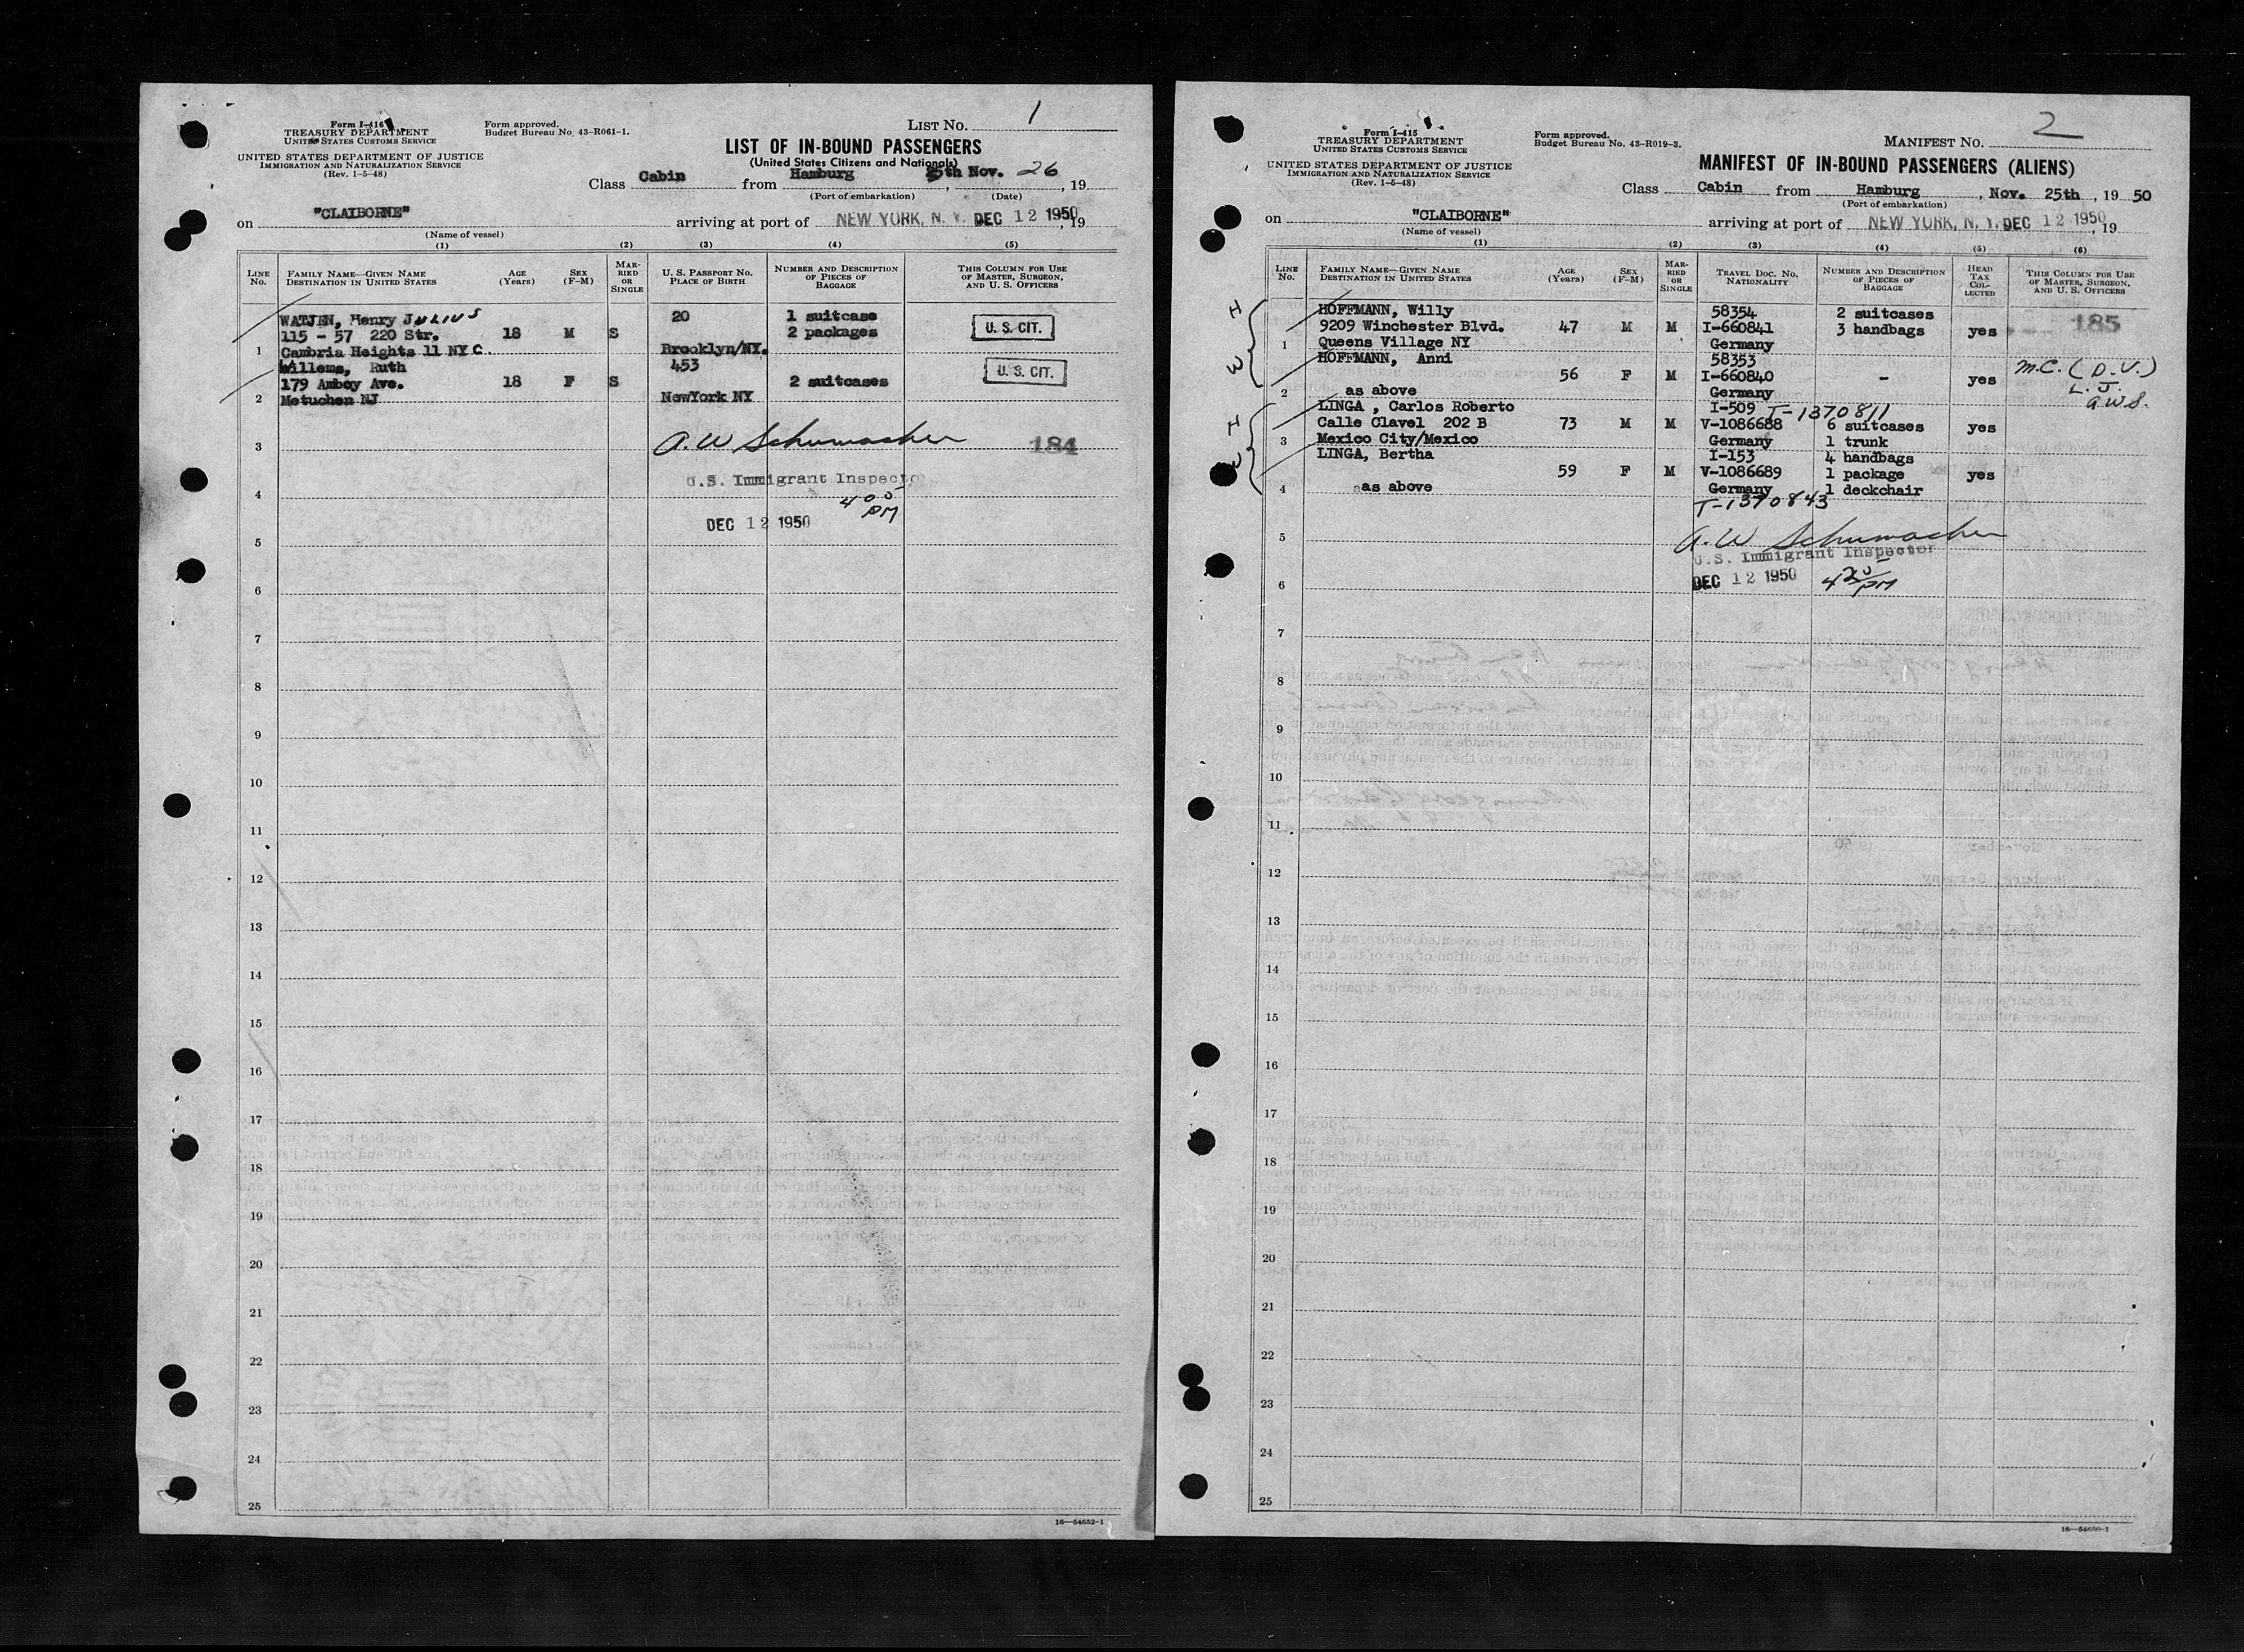 Form I-415
TREASURY DEPARTMENT
UNITED STATES CUSTOMS SERVICE
UNITED STATES DEPARTMENT OF JUSTICE
IMMIGRATION AND NATURALIZATION SERVICE
(Rev. 1-5-48)
Form approved.
Budget Bureau No. 43-R061-1.
LIST NO. 1
LIST OF IN-BOUND PASSENGERS
(United States Citizens and Nationals)
Class Cabin from Hamburg 25th Nov. 26, 19
(Port of embarkation) (Date)
on "CLAIBORNE" arriving at port of NEW YORK, N. Y. DEC 12 1950, 19
(Name of vessel)
(1) (2) (3) (4) (5)
LINE No.
FAMILY NAME—GIVEN NAME
DESTINATION IN UNITED STATES
AGE
(Years)
SEX
(F-M)
MAR-
RIED
OR
SINGLE
U. S. PASSPORT NO.
PLACE OF BIRTH
NUMBER AND DESCRIPTION
OF PIECES OF
BAGGAGE
THIS COLUMN FOR USE
OF MASTER, SURGEON,
AND U. S. OFFICERS
WATJEN, Henry JULIUS 20 1 suitcase
115 - 57 220 Str. 18 M S 2 packages U. S. CIT.
1 Cambria Heights 11 NYC. Brooklyn/NY.
Willems, Ruth 453
179 Amboy Ave. 18 F S 2 suitcases U. S. CIT.
2 Metuchen NJ NewYork NY
3 A. W. Schumacher 184
U.S. Immigrant Inspector
4 4 05 PM
DEC 12 1950
5
6
7
8
9
10
11
12
13
14
15
16
17
18
19
20
21
22
23
24
25
16—54652-1
Form I-415
TREASURY DEPARTMENT
UNITED STATES CUSTOMS SERVICE
UNITED STATES DEPARTMENT OF JUSTICE
IMMIGRATION AND NATURALIZATION SERVICE
(Rev. 1-5-48)
Form approved.
Budget Bureau No. 43-R019-3.
MANIFEST NO. 2
MANIFEST OF IN-BOUND PASSENGERS (ALIENS)
Class Cabin from Hamburg, Nov. 25th, 19 50
(Port of embarkation)
on "CLAIBORNE" arriving at port of NEW YORK, N. Y. DEC 12 1950, 19
(Name of vessel)
(1) (2) (3) (4) (5) (6)
LINE No.
FAMILY NAME—GIVEN NAME
DESTINATION IN UNITED STATES
AGE
(Years)
SEX
(F-M)
MAR-
RIED
OR
SINGLE
TRAVEL DOC. NO.
NATIONALITY
NUMBER AND DESCRIPTION
OF PIECES OF
BAGGAGE
HEAD
TAX
COL-
LECTED
THIS COLUMN FOR USE
OF MASTER, SURGEON,
AND U. S. OFFICERS
H HOFFMANN, Willy 58354 2 suitcases
9209 Winchester Blvd. 47 M M I-660841 3 handbags yes 185
1 Queens Village NY Germany
W HOFFMANN, Anni 58353 M.C. (D.V.)
56 F M I-660840 - yes L. J.
2 as above Germany A W S.
H LINGA , Carlos Roberto I-509 T-1370811
Calle Clavel 202 B 73 M M V-1086688 6 suitcases yes
3 Mexico City/Mexico Germany 1 trunk
W LINGA, Bertha I-153 4 handbags
59 F M V-1086689 1 package yes
4 as above Germany 1 deckchair
T-1370843
5 A. W. Schumacher
U.S. Immigrant Inspector
6 DEC 12 1950 4 20 PM
7
8
9
10
11
12
13
14
15
16
17
18
19
20
21
22
23
24
25
16—54650-1